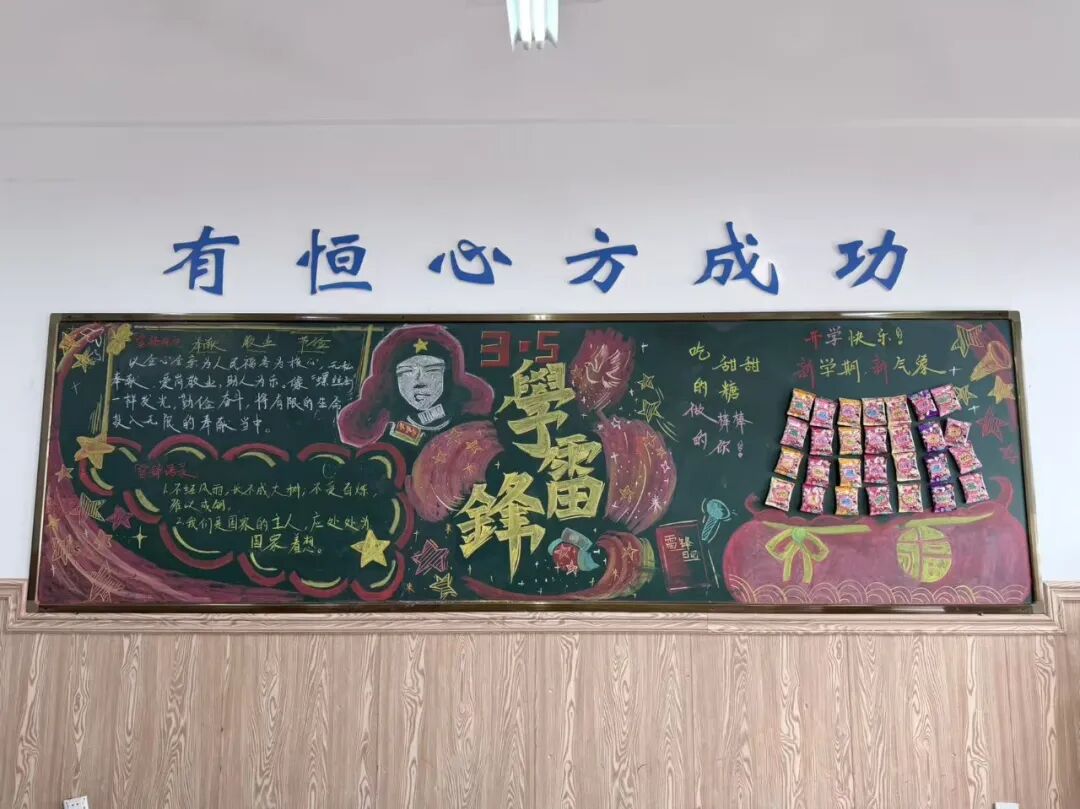 有恒心方成功
雷锋精神 奉献 敬业 节俭
以全心全意为人民服务为核心,无私
奉献、爱岗敬业,助人为乐,像"螺丝钉"
一样发光,勤俭奋斗,将有限的生命
投入无限的奉献当中。
雷锋语录
1.不经风雨,长不成大树;不受百炼,
难以成钢。
2.我们是国家的主人,应处处为
国家着想。
3·5
學雷鋒
雷锋
日记
吃甜甜
的糖
做棒棒
的你
开学快乐!
新学期 新气象
福